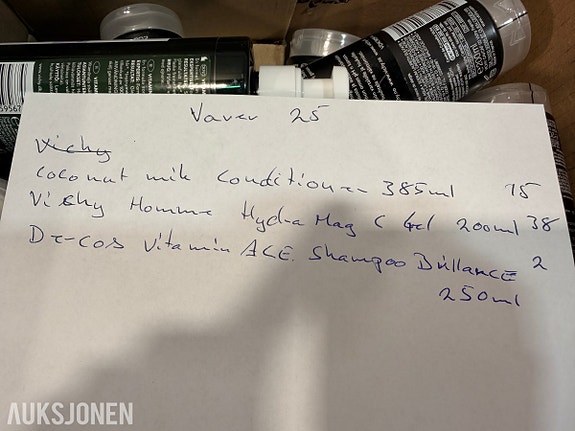 Varer 25
Vichy
Coconut milk Conditioner 385ml 15
Vichy Homme Hydra Mag C Gel 200ml 38
De-cos Vitamin ACE. Shampoo Brillance 2
250ml
AUKSJONEN